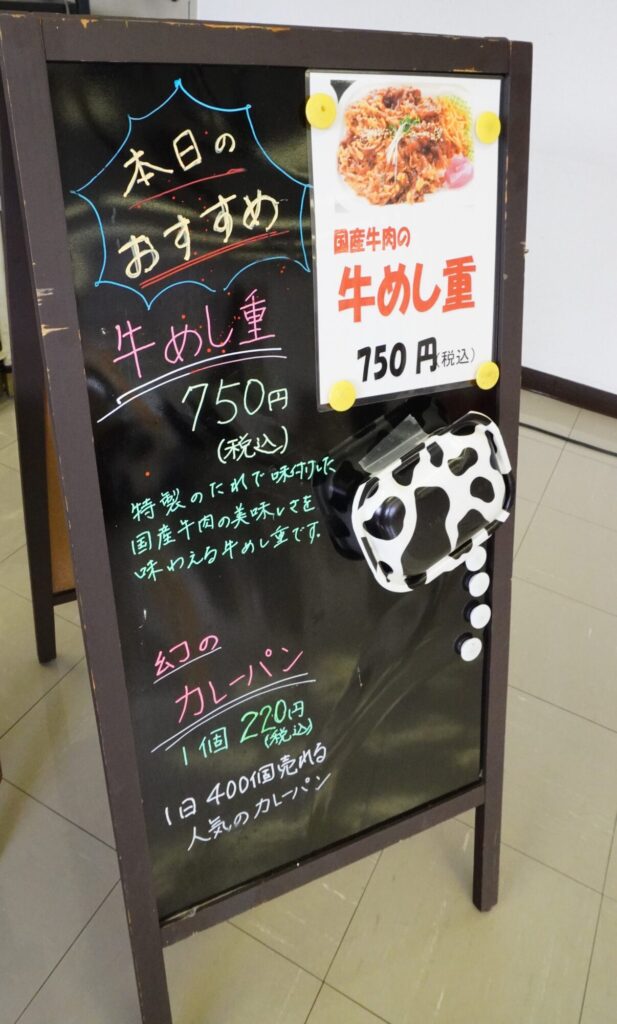 本日の
おすすめ
牛めし重
750円
(税込)
特製のたれで味付けした
国産牛肉の美味しさを
味わえる牛めし重です。
幻の
カレーパン
1個 220円
(税込)
1日400個売れる
人気のカレーパン
国産牛肉の
牛めし重
750円(税込)